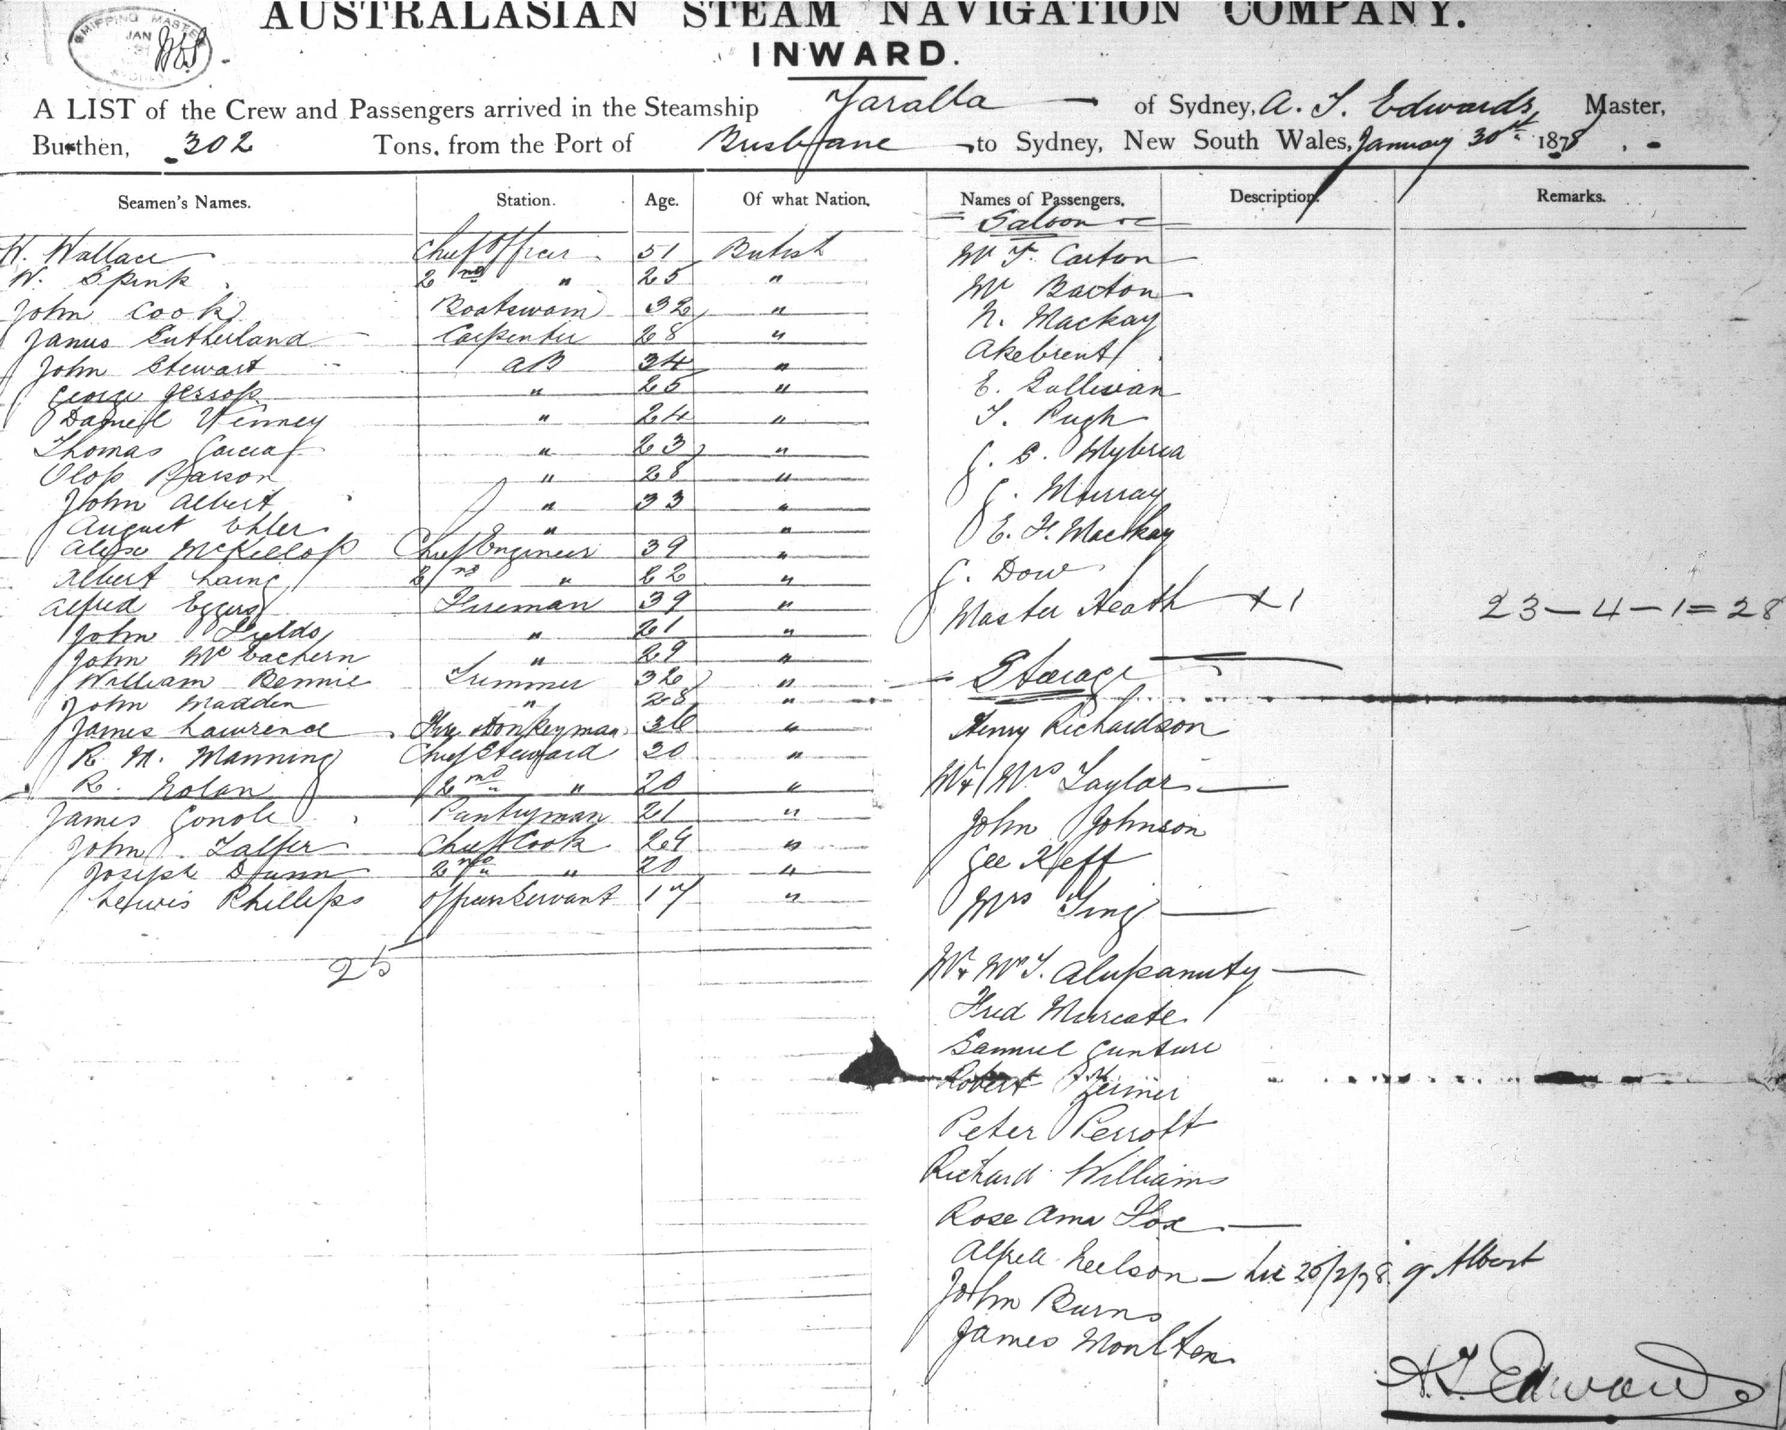 AUSTRALASIAN STEAM NAVIGATION COMPANY.
SHIPPING MASTER
JAN
INWARD.
A LIST of the Crew and Passengers arrived in the Steamship Yaralla of Sydney, A. T. Edwards Master,
Burthen, 302 Tons, from the Port of Brisbane to Sydney, New South Wales, January 30th 1878
Seamen's Names. Station. Age. Of what Nation. Names of Passengers. Description. Remarks.
Saloon
W. Wallace Chief Officer 51 British
W. Spink 2nd " 25 "
John Cook Boatswain 32 "
James Sutherland Carpenter 28 "
John Stewart AB 34 "
George Jessop " 25 "
Daniel Venney " 24 "
Thomas Garcia " 23 "
Olof Parson " 28 "
John Albert " 33 "
August Ehler " "
McKillop Chief Engineer 39 "
Albert Laing 2nd " 22 "
Alfred Eggers Fireman 39 "
John Fields " 21 "
John McEachern " 29 "
William Bennie Trimmer 32 "
John Madden " 28 "
James Lawrence Donkeyman 36 "
R. M. Manning Chief Steward 30 "
R. Nolan 2nd " 20 "
James Pantryman 21 "
John Chief Cook 24 "
Joseph Dunn 2nd " 20 "
Lewis Phillips Officers Servant 17 "
25
Mr T. Carton
Mr Barton
N. Mackay
Akebrent
E. Sullivan
T. Pugh
J. S.
J. Murray
E. F. Mackay
J. Dow
Master Heath + 1 23 – 4 – 1 = 28
Steerage
Henry Richardson
Mr & Mrs Taylor
John Johnson
Gee Keff
Mrs
Mr & Mrs T.
Fred
Samuel
Robert
Peter Perrott
Richard Williams
Rose Ann Fox
Alfred Neelson – 25/2/78 Albert
John Burns
James Moulten
A. T. Edwards